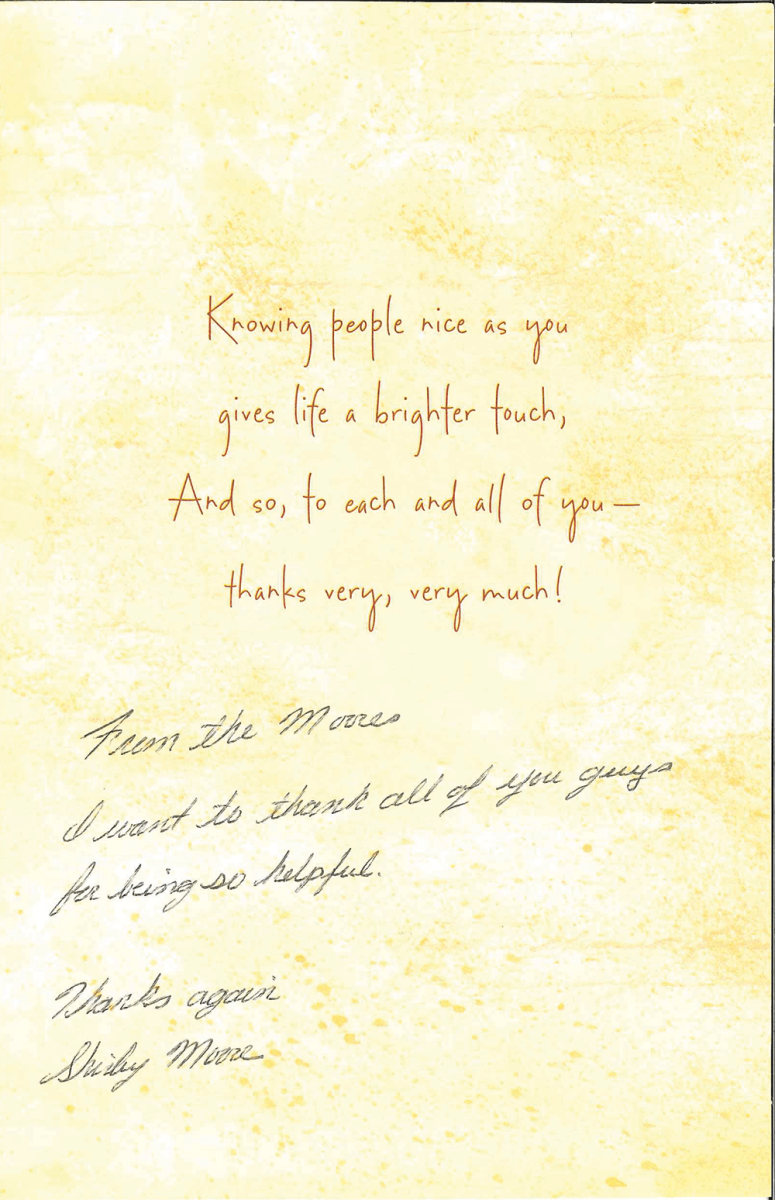 Knowing people nice as you
gives life a brighter touch,
And so, to each and all of you—
thanks very, very much!
From the Moores
I want to thank all of you guys
for being so helpful.
Thanks again
Shirley Moore